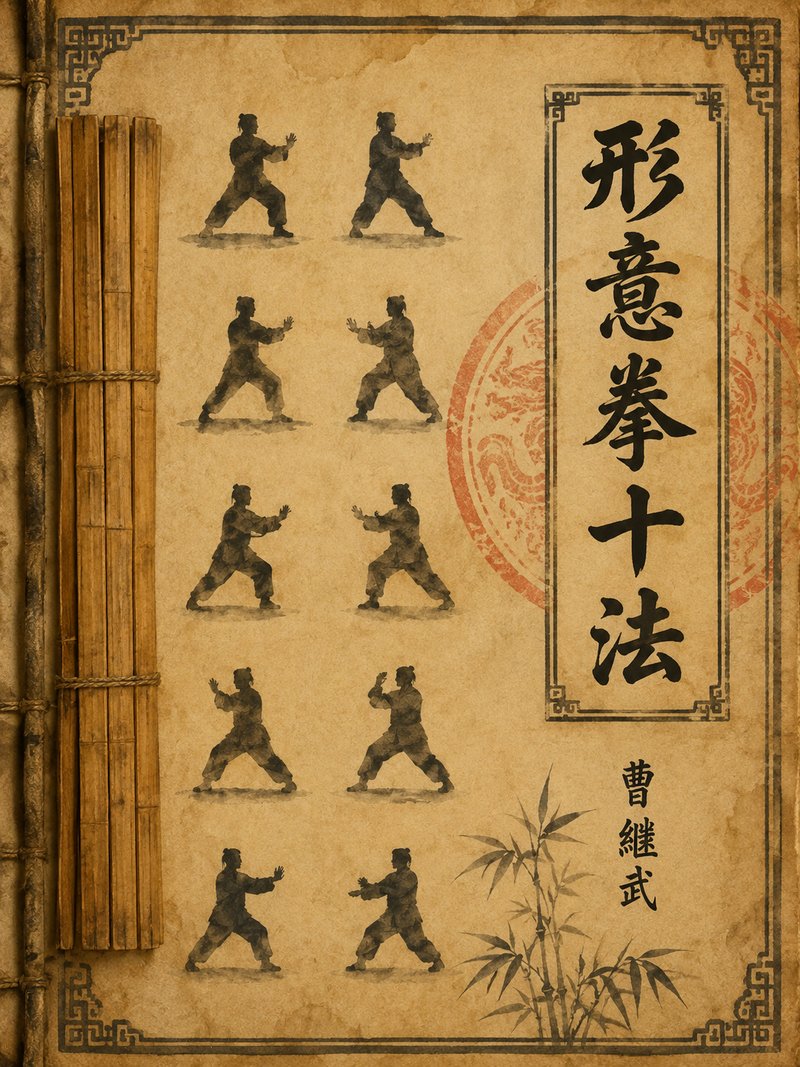 形意拳十法
曹继武